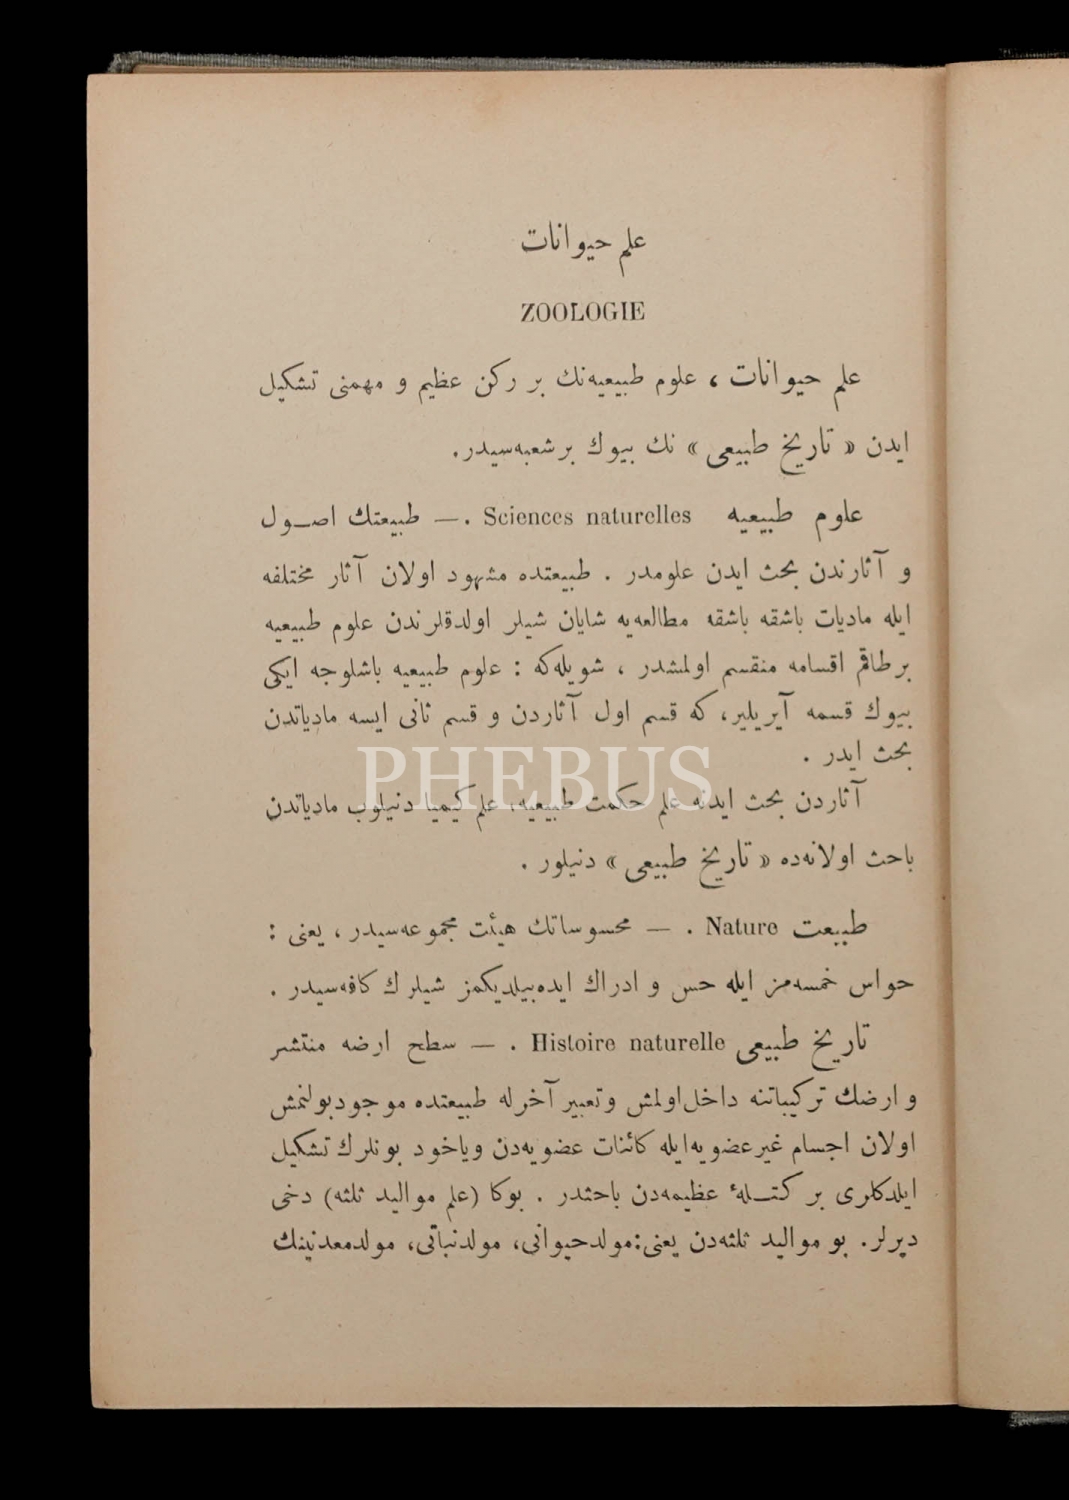 علم حيوانات
ZOOLOGIE
علم حيوانات ، علوم طبيعيه‌نك بر ركن عظيم و مهمنى تشكيل
ايدن « تاريخ طبيعى » نك بيوك بر شعبه‌سيدر.
علوم طبيعيه Sciences naturelles . — طبيعتك اصـول
و آثارندن بحث ايدن علومدر . طبيعتده مشهود اولان آثار مختلفه
ايله ماديات باشقه باشقه مطالعه‌يه شايان شيلر اولدقلرندن علوم طبيعيه
بر طاقم اقسامه منقسم اولمشدر ، شويله‌كه : علوم طبيعيه باشلوجه ايكى
بيوك قسمه آيريلير، كه قسم اول آثاردن و قسم ثانى ايسه مادياتدن
بحث ايدر .
PHEBUS
آثاردن بحث ايدنه علم حكمت طبيعيه، علم كيميا دنيلوب مادياتدن
باحث اولانه‌ده « تاريخ طبيعى » دنيلور .
طبيعت Nature . — محسوساتك هيئت مجموعه‌سيدر ، يعنى :
حواس خمسه‌مز ايله حس و ادراك ايده‌بيلديكمز شيلرك كافه‌سيدر .
تاريخ طبيعى Histoire naturelle . — سطح ارضه منتشر
و ارضك تركيباتنه داخل‌اولمش وتعبير آخرله طبيعتده موجودبولنمش
اولان اجسام غيرعضويه‌ايله كائنات عضويه‌دن وياخود بونلرك تشكيل
ايلدكلرى بر كتـلهٔ عظيمه‌دن باحثدر . بوكا (علم مواليد ثلثه) دخى
ديرلر. بو مواليد ثلثه‌دن يعنى:مولدحيوانى، مولدنباتى، مولدمعدنينك